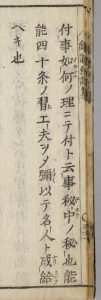 付事如何ノ理ニテ付ト云事秘中ノ秘也能
能四十条ノ習工夫ヲメ彌以テ名人ト成給
ヘキ也